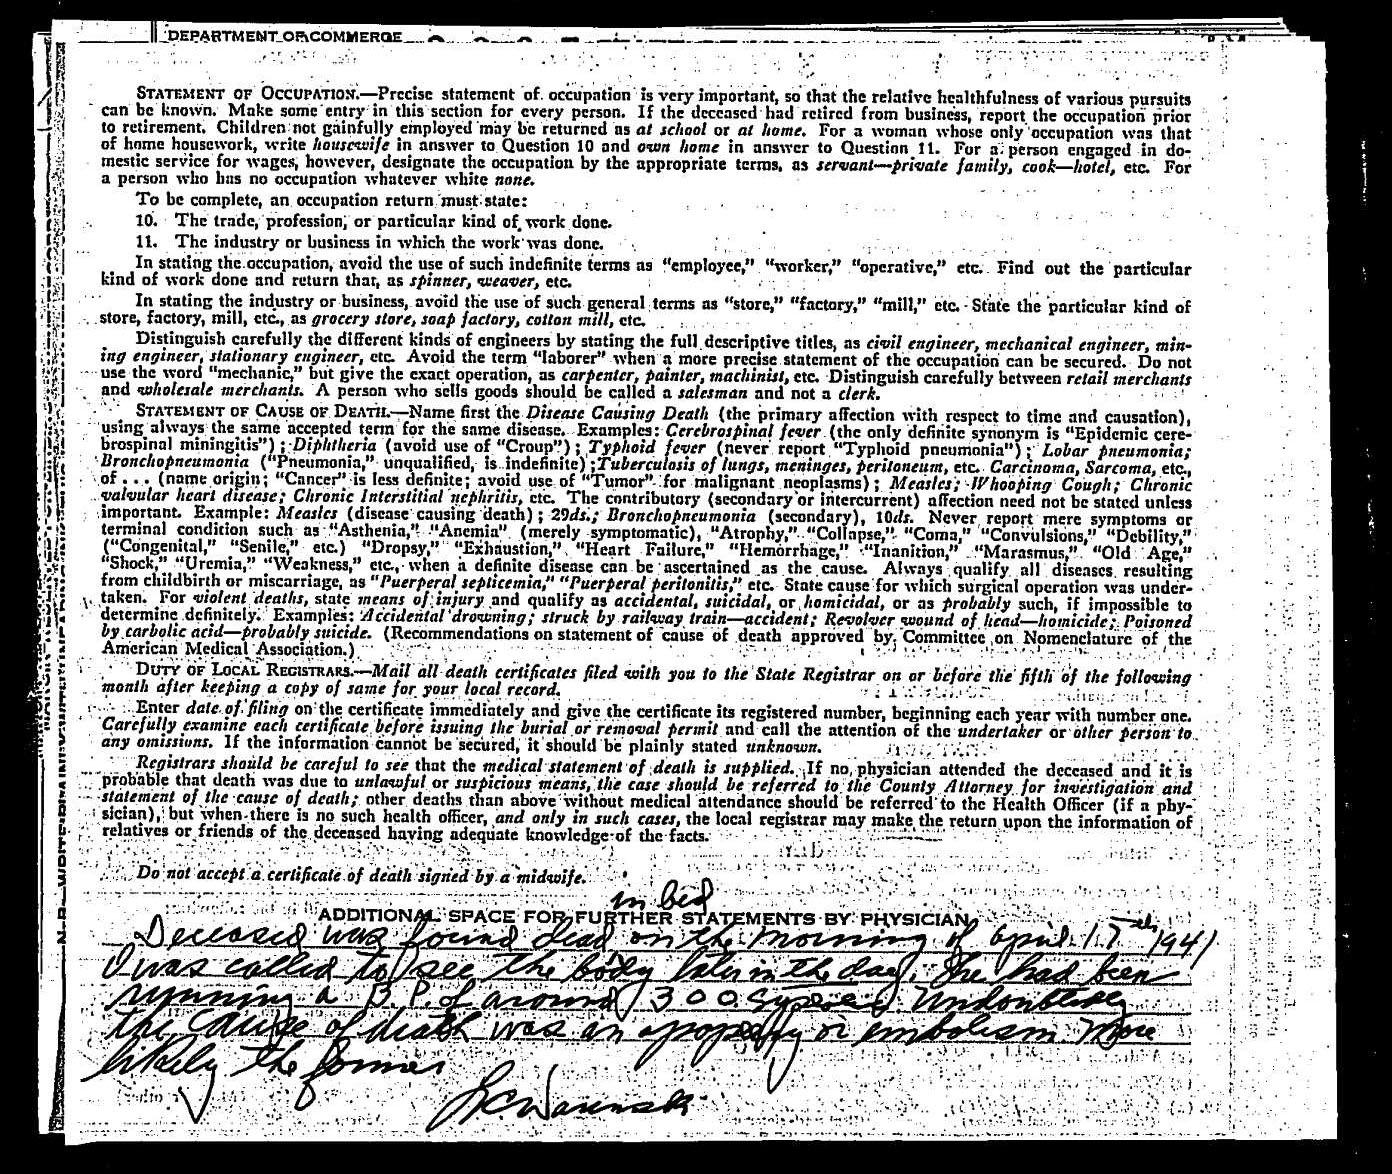 DEPARTMENT OF COMMERCE
STATEMENT OF OCCUPATION.—Precise statement of occupation is very important, so that the relative healthfulness of various pursuits
can be known. Make some entry in this section for every person. If the deceased had retired from business, report the occupation prior
to retirement. Children not gainfully employed may be returned as at school or at home. For a woman whose only occupation was that
of home housework, write housewife in answer to Question 10 and own home in answer to Question 11. For a person engaged in do-
mestic service for wages, however, designate the occupation by the appropriate terms, as servant—private family, cook—hotel, etc. For
a person who has no occupation whatever white none.
To be complete, an occupation return must state:
10. The trade, profession, or particular kind of work done.
11. The industry or business in which the work was done.
In stating the occupation, avoid the use of such indefinite terms as “employee,” “worker,” “operative,” etc. Find out the particular
kind of work done and return that, as spinner, weaver, etc.
In stating the industry or business, avoid the use of such general terms as “store,” “factory,” “mill,” etc. State the particular kind of
store, factory, mill, etc., as grocery store, soap factory, cotton mill, etc.
Distinguish carefully the different kinds of engineers by stating the full descriptive titles, as civil engineer, mechanical engineer, min-
ing engineer, stationary engineer, etc. Avoid the term “laborer” when a more precise statement of the occupation can be secured. Do not
use the word “mechanic,” but give the exact operation, as carpenter, painter, machinist, etc. Distinguish carefully between retail merchants
and wholesale merchants. A person who sells goods should be called a salesman and not a clerk.
STATEMENT OF CAUSE OF DEATH.—Name first the Disease Causing Death (the primary affection with respect to time and causation),
using always the same accepted term for the same disease. Examples: Cerebrospinal fever (the only definite synonym is “Epidemic cere-
brospinal miningitis”); Diphtheria (avoid use of “Croup”); Typhoid fever (never report “Typhoid pneumonia”); Lobar pneumonia;
Bronchopneumonia (“Pneumonia,” unqualified, is indefinite); Tuberculosis of lungs, meninges, peritoneum, etc. Carcinoma, Sarcoma, etc.,
of . . . (name origin; “Cancer” is less definite; avoid use of “Tumor” for malignant neoplasms); Measles; Whooping Cough; Chronic
valvular heart disease; Chronic Interstitial nephritis, etc. The contributory (secondary or intercurrent) affection need not be stated unless
important. Example: Measles (disease causing death); 29ds.; Bronchopneumonia (secondary), 10ds. Never report mere symptoms or
terminal condition such as “Asthenia,” “Anemia” (merely symptomatic), “Atrophy,” “Collapse,” “Coma,” “Convulsions,” “Debility,”
(“Congenital,” “Senile,” etc.) “Dropsy,” “Exhaustion,” “Heart Failure,” “Hemorrhage,” “Inanition,” “Marasmus,” “Old Age,”
“Shock,” “Uremia,” “Weakness,” etc., when a definite disease can be ascertained as the cause. Always qualify all diseases resulting
from childbirth or miscarriage, as “Puerperal septicemia,” “Puerperal peritonitis,” etc. State cause for which surgical operation was under-
taken. For violent deaths, state means of injury and qualify as accidental, suicidal, or homicidal, or as probably such, if impossible to
determine definitely. Examples: Accidental drowning; struck by railway train—accident; Revolver wound of head—homicide; Poisoned
by carbolic acid—probably suicide. (Recommendations on statement of cause of death approved by Committee on Nomenclature of the
American Medical Association.)
DUTY OF LOCAL REGISTRARS.—Mail all death certificates filed with you to the State Registrar on or before the fifth of the following
month after keeping a copy of same for your local record.
Enter date of filing on the certificate immediately and give the certificate its registered number, beginning each year with number one.
Carefully examine each certificate before issuing the burial or removal permit and call the attention of the undertaker or other person to
any omissions. If the information cannot be secured, it should be plainly stated unknown.
Registrars should be careful to see that the medical statement of death is supplied. If no physician attended the deceased and it is
probable that death was due to unlawful or suspicious means, the case should be referred to the County Attorney for investigation and
statement of the cause of death; other deaths than above without medical attendance should be referred to the Health Officer (if a phy-
sician), but when there is no such health officer, and only in such cases, the local registrar may make the return upon the information of
relatives or friends of the deceased having adequate knowledge of the facts.
Do not accept a certificate of death signed by a midwife.
in bed
ADDITIONAL SPACE FOR FURTHER STATEMENTS BY PHYSICIAN
Deceased was found dead on the morning of April 17th 1941
I was called to see the body later in the day. She had been
running a B.P. of around 300 Undoubtedly
the cause of death was an apoplexy or embolism more
likely the former